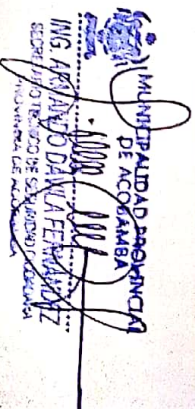 MUNICIPALIDAD PROVINCIAL
DE ACOBAMBA
ING. ARMANDO DAVILA FERNANDEZ
SECRETARIO TECNICO DE SEGURIDAD CIUDADANA
PROVINCIA DE ACOBAMBA